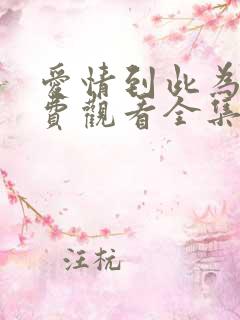 愛情到此為
費觀看全集
汪杭